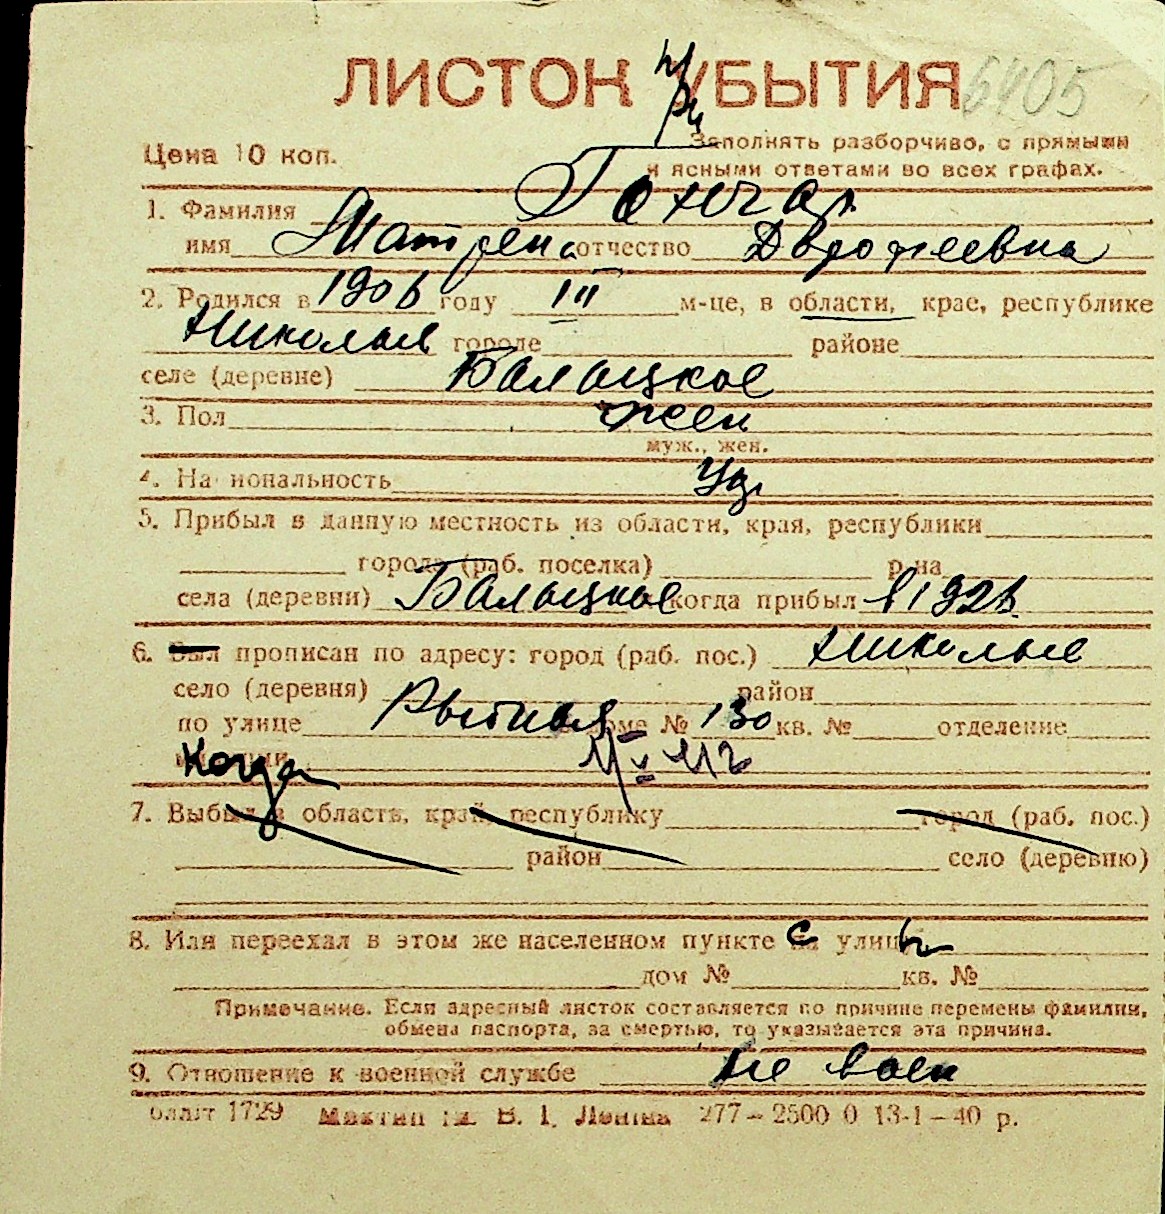 ЛИСТОК УБЫТИЯ 6405
при
Цена 10 коп.
Заполнять разборчиво, с прямыми
и ясными ответами во всех графах.
1. Фамилия Гончар
имя Матрена отчество Дорофеевна
2. Родился в 1906 году III м-це, в области, крае, республике
Николаев городе районе
селе (деревне) Балацкое
3. Пол жен
муж., жен.
4. На иональность Укр
5. Прибыл в данную местность из области, края, республики
города (раб. поселка) р на
села (деревни) Балацкое когда прибыл в 1926
6. Был прописан по адресу: город (раб. пос.) Николаев
село (деревня) район
по улице Рыбная доме № 130 кв. № отделение
Когда
7. Выбыл в область, край, республику город (раб. пос.)
район село (деревню)
8. Или переехал в этом же населенном пункте с улицы
дом № кв. №
Примечание. Если адресный листок составляется по причине перемены фамилии,
обмена паспорта, за смертью, то указывается эта причина.
9. Отношение к военной службе не воен
1729 В. І. Леніна 277–2500 0 13-1–40 р.